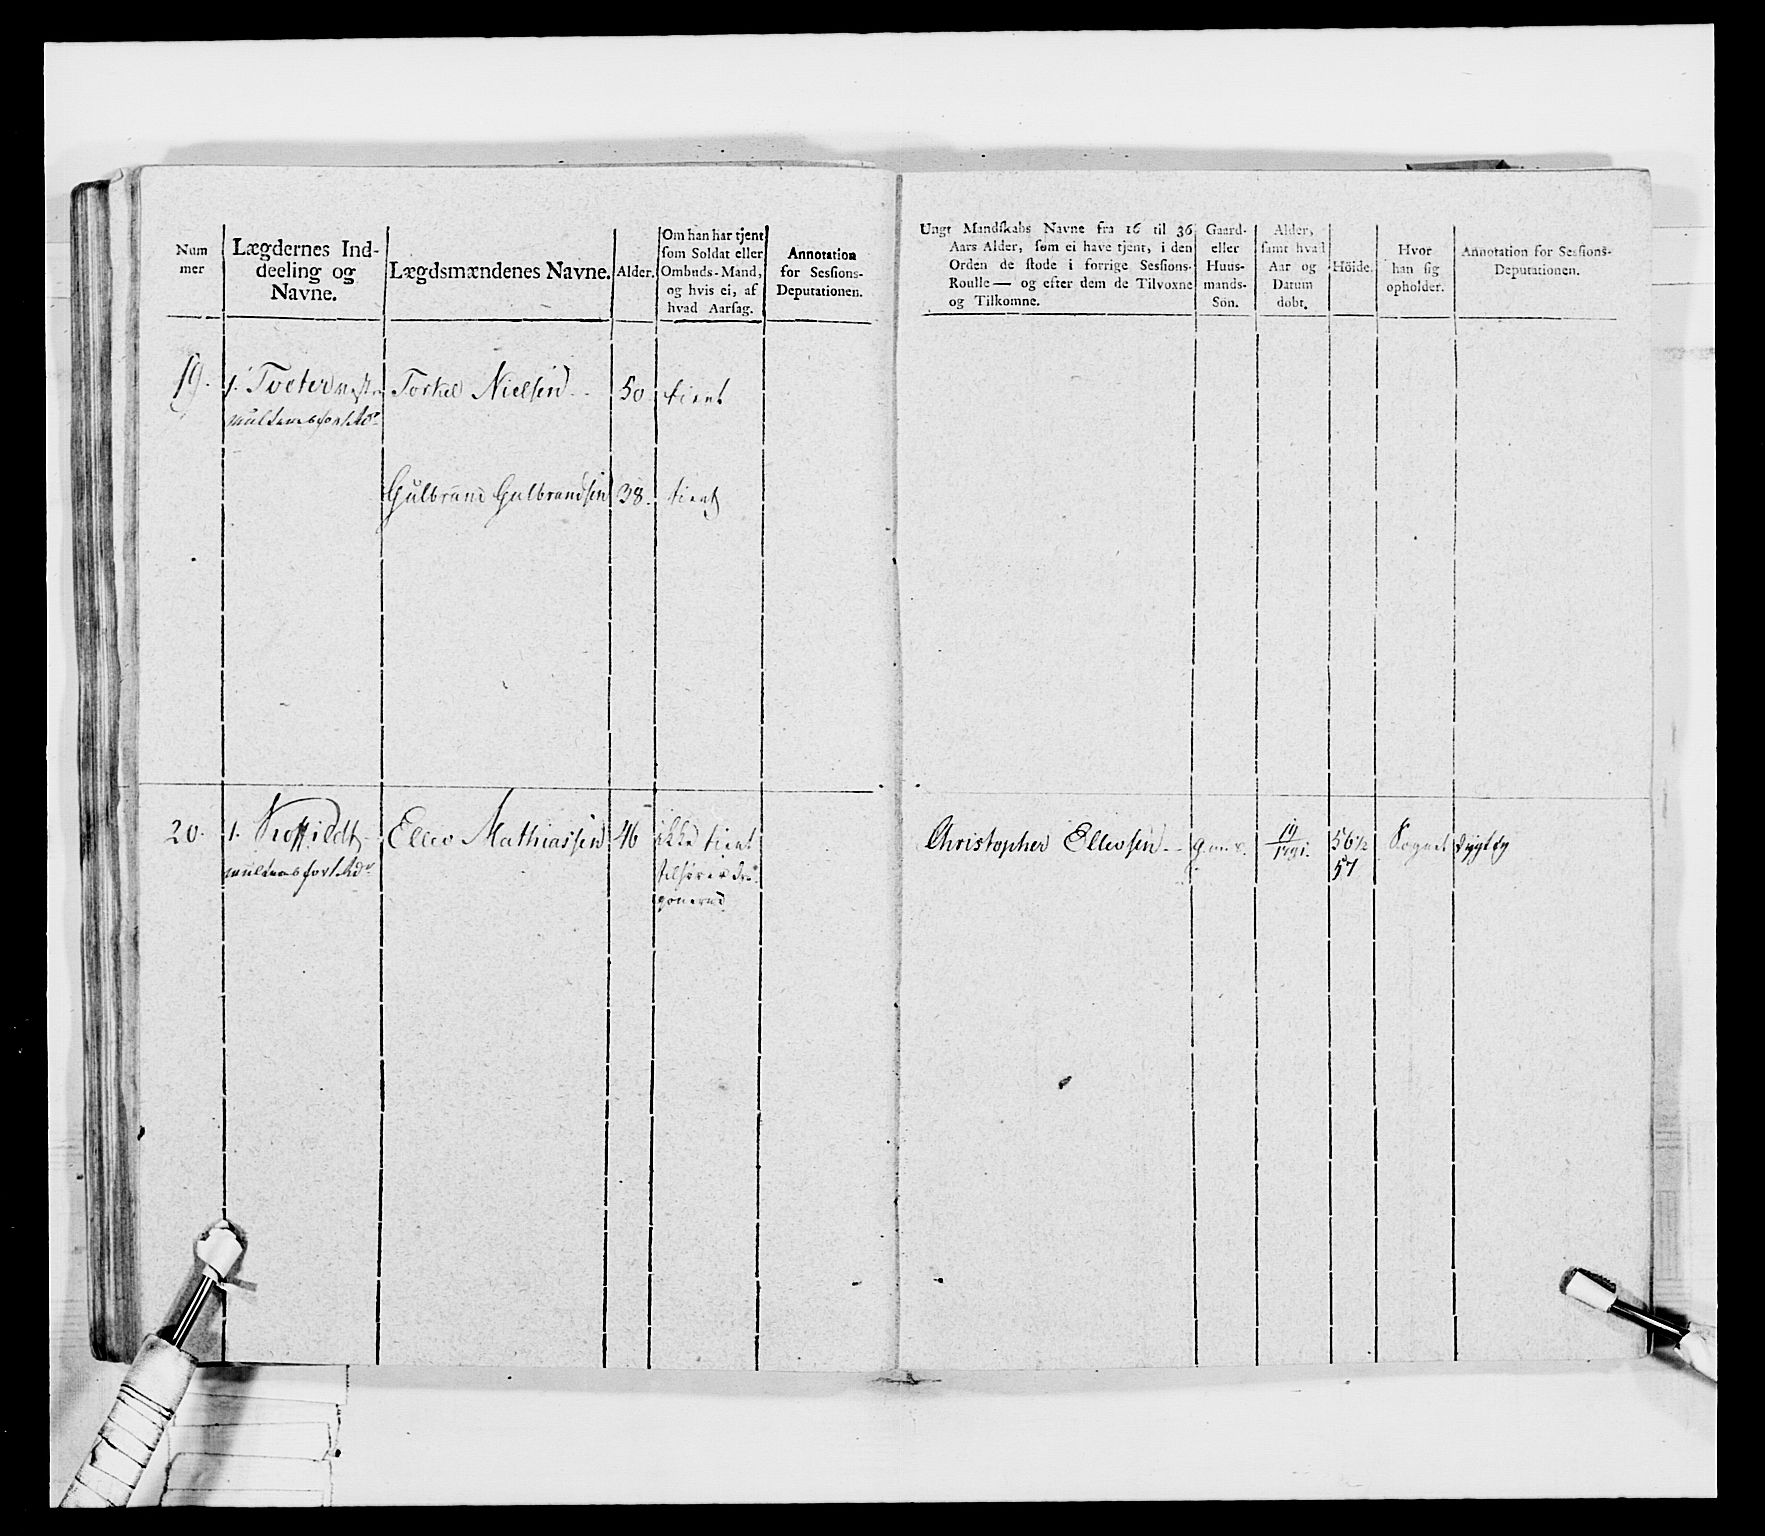 Num
mer
Lægdernes Ind-
deeling og
Navne.
Lægdsmændenes Navne.
Alder.
Om han har tjent
som Soldat eller
Ombuds-Mand,
og hvis ei, af
hvad Aarsag.
Annotation
for Sessions-
Deputationen.
Ungt Mandskabs Navne fra 16 til 36
Aars Alder, som ei have tjent, i den
Orden de stode i forrige Sessions-
Roulle — og efter dem de Tilvoxne
og Tilkomne.
Gaard-
eller
Huus-
mands-
Sön.
Alder,
samt hvad
Aar og
Datum
dobt.
Höide.
Hvor
han sig
opholder.
Annotation for Sessions-
Deputationen.
19. 1. Tveter Torkel Nielsen 50 tient
Gulbrand Gulbrandsen 38. tient
20. 1. Ellev Mathiassen 46 ikke tient
Christopher Ellevsen 19/1791. 56 1/2 Sognet dygtig
57